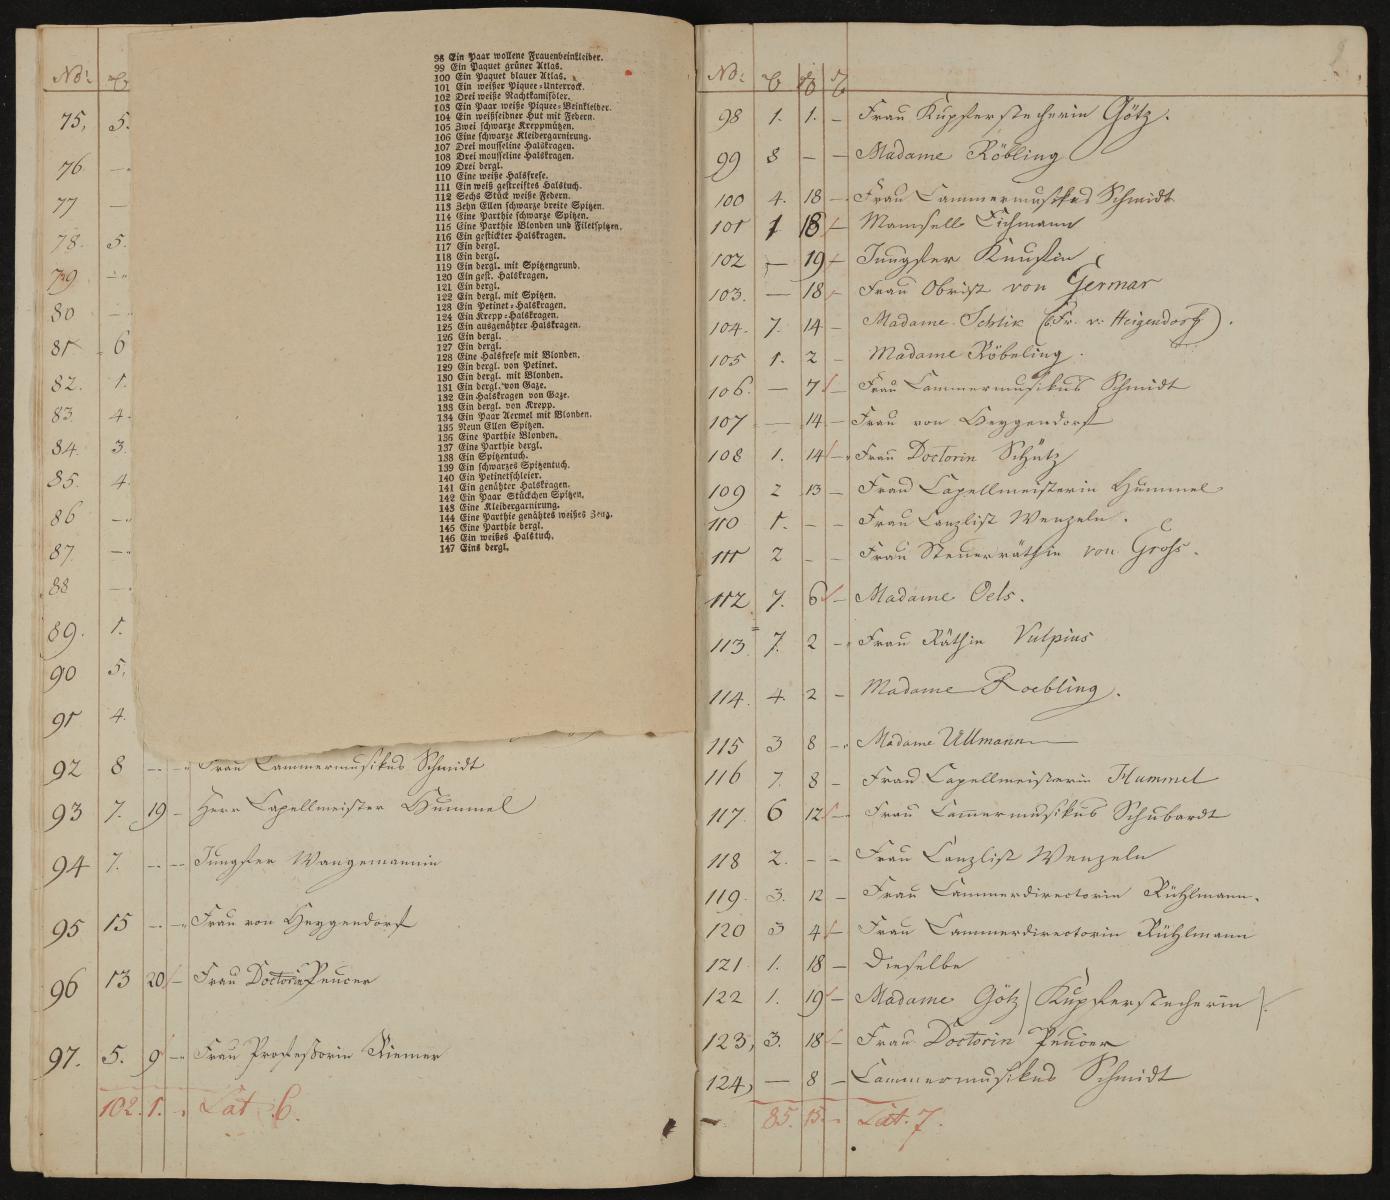 No.
75, 5.
76 —
77 —
78. 5.
79 —
80 —
81 6
82. 1.
83. 4.
84. 3.
85. 4.
86 —
87 —
88 —
89. 1.
90 5.
91 4.
98 Ein Paar wollene Frauenbeinkleider.
99 Ein Paquet grüner Atlas.
100 Ein Paquet blauer Atlas.
101 Ein weißer Piquee-Unterrock.
102 Drei weiße Nachtkamisöler.
103 Ein Paar weiße Piquee-Beinkleider.
104 Ein weißseidner Hut mit Federn.
105 Zwei schwarze Kreppmützen.
106 Eine schwarze Kleidergarnirung.
107 Drei mousseline Halskragen.
108 Drei mousseline Halskragen.
109 Drei dergl.
110 Eine weiße Halsfrese.
111 Ein weiß gestreiftes Halstuch.
112 Sechs Stück weiße Federn.
113 Zehn Ellen schwarze breite Spitzen.
114 Eine Parthie schwarze Spitzen.
115 Eine Parthie Blonden und Filetspitzen.
116 Ein gestickter Halskragen.
117 Ein dergl.
118 Ein dergl.
119 Ein dergl. mit Spitzengrund.
120 Ein gest. Halskragen.
121 Ein dergl.
122 Ein dergl. mit Spitzen.
123 Ein Petinet-Halskragen.
124 Ein Krepp-Halskragen.
125 Ein ausgenähter Halskragen.
126 Ein dergl.
127 Ein dergl.
128 Eine Halsfrese mit Blonden.
129 Ein dergl. von Petinet.
130 Ein dergl. mit Blonden.
131 Ein dergl. von Gaze.
132 Ein Halskragen von Gaze.
133 Ein dergl. von Krepp.
134 Ein Paar Aermel mit Blonden.
135 Neun Ellen Spitzen.
136 Eine Parthie Blonden.
137 Eine Parthie dergl.
138 Ein Spitzentuch.
139 Ein schwarzes Spitzentuch.
140 Ein Petinetschleier.
141 Ein genähter Halskragen.
142 Ein Paar Stückchen Spitzen.
143 Eine Kleidergarnirung.
144 Eine Parthie genähtes weißes Zeug.
145 Eine Parthie dergl.
146 Ein weißes Halstuch.
147 Eins dergl.
92 8 — — Frau Cammermusikus Schmidt
93 7. 19 — Herr Capellmeister Hummel
94 7. — — Jungfer Wangemannin
95 15 — — Frau von Heygendorf
96 13 20 — Frau Doctorin Peucer
97. 5. 9 — Frau Professorin Riemer
102. 1. — Lat. 6.
No.
98 1. 1. — Frau Kupferstecherin Götz.
99 8 — — Madame Röbling
100 4. 18 — Frau Cammermusikus Schmidt
101 1 18 — Mamsell Eichmann
102 — 19 — Jungfer
103. — 18 — Frau Obrist von Germar
104. 7. 14 — Madame Schlik (f. Fr. v. Heigendorf).
105 1. 2 — Madame Röbeling.
106. — 7 — Frau Cammermusikus Schmidt
107 — 14 — Frau von Heygendorf
108 1. 14 — Frau Doctorin Schütz
109 2 13 — Frau Capellmeisterin Hummel
110 1. — — Frau Canzlist Wenzeln.
111 2 — — Frau Steuerräthin von Groß.
112 7. 6 — Madame Oels.
113. 7. 2 — Frau Räthin Vulpius
114. 4. 2 — Madame Roebling.
115 3 8 — Madame Ullmann
116 7. 8 — Frau Capellmeisterin Hummel
117. 6 12 — Frau Cammermusikus Schubardt
118 2. — — Frau Canzlist Wenzeln
119. 3. 12 — Frau Cammerdirectorin Rühlmann.
120 3 4 — Frau Cammerdirectorin Rühlmann
121 1. 18 — Dieselbe
122 1. 19 — Madame Götz (Kupferstecherin)
123, 3. 18 — Frau Doctorin Peucer
124, — 8 — Cammermusikus Schmidt
85. 15. — Lat. 7.